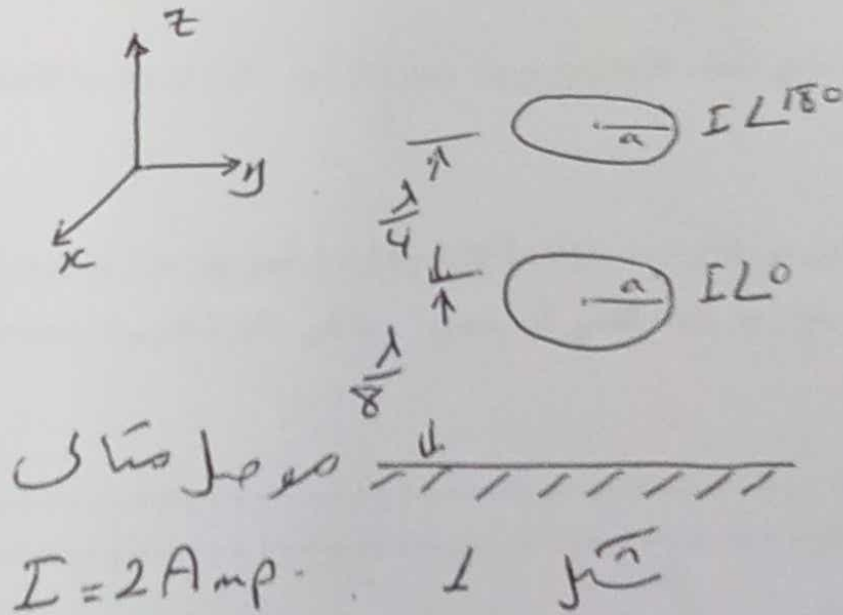 z
y
x
a I∠180
λ/4
a I∠0
λ/8
موصل مثالى
I = 2 Amp.
شكل 1